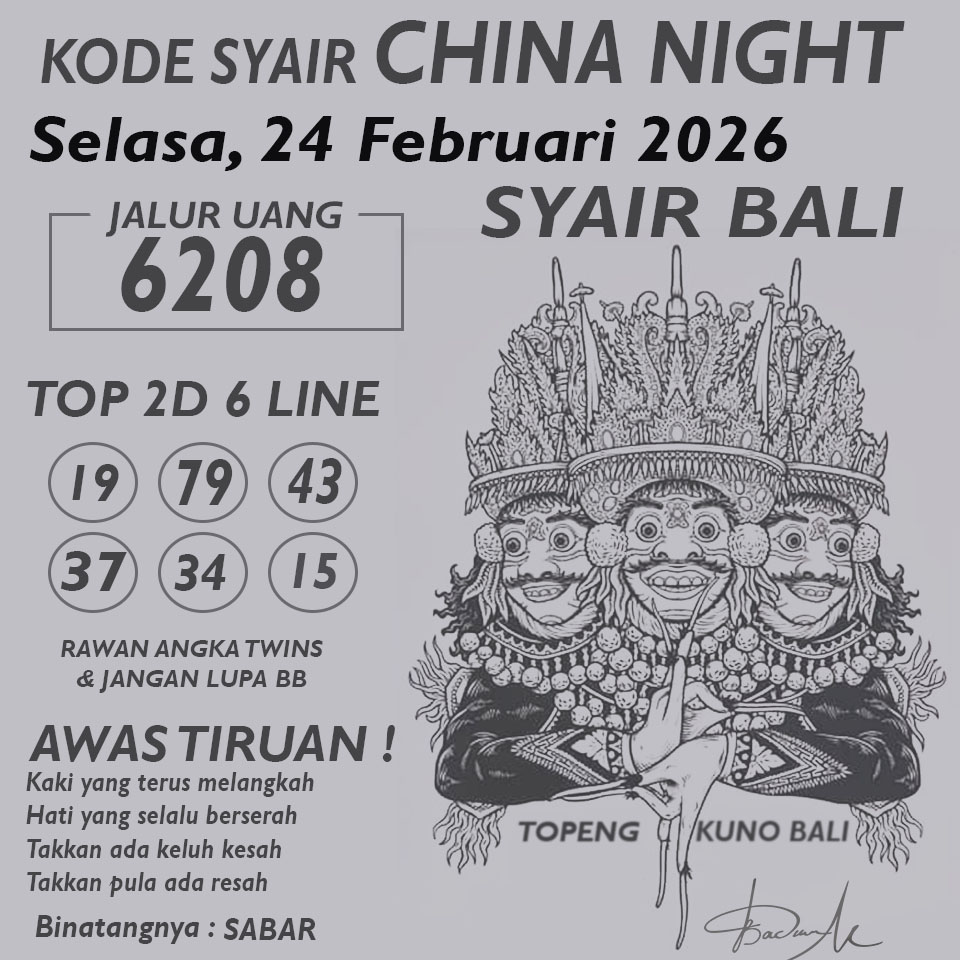 KODE SYAIR CHINA NIGHT
Selasa, 24 Februari 2026
SYAIR BALI
JALUR UANG
6208
TOP 2D 6 LINE
19 79 43
37 34 15
RAWAN ANGKA TWINS
& JANGAN LUPA BB
AWAS TIRUAN !
Kaki yang terus melangkah
Hati yang selalu berserah
Takkan ada keluh kesah
Takkan pula ada resah
Binatangnya : SABAR
TOPENG KUNO BALI